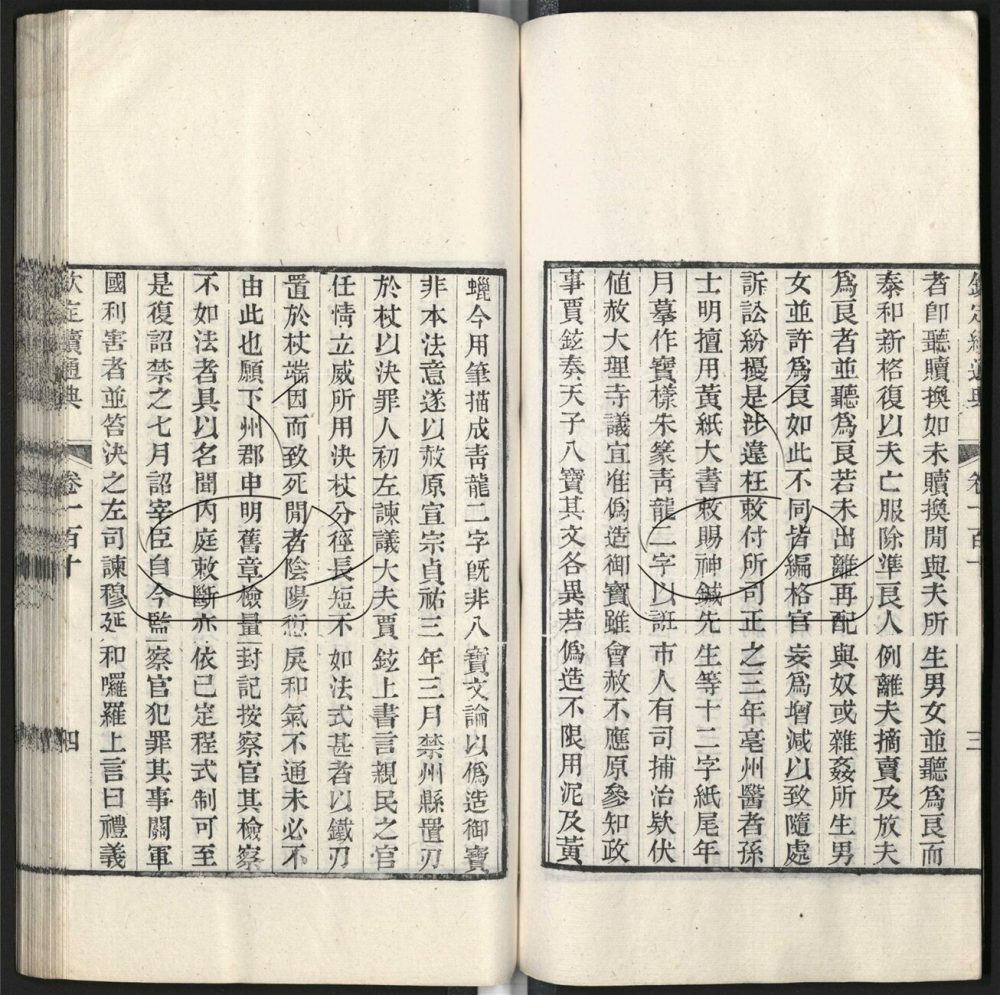 欽定續通典 卷一百十 三
者卽聽贖換如未贖換閒與夫所生男女並聽爲良而
泰和新格復以夫亡服除準良人例離夫摘賣及放夫
爲良者並聽爲良若未出離再配與奴或雜姦所生男
女並許爲良如此不同皆編格官妄爲增減以致隨處
訴訟紛擾是涉違枉敕付所司正之三年亳州醫者孫
士明擅用黃紙大書敕賜神鍼先生等十二字紙尾年
月摹作寶樣朱篆靑龍二字以誑市人有司捕治欵伏
値赦大理寺議宜准僞造御寶雖會赦不應原參知政
事賈鉉奏天子八寶其文各異若僞造不限用泥及黃
蠟今用筆描成靑龍二字旣非八寶文論以僞造御寶
非本法意遂以赦原宣宗貞祐三年三月禁州縣置刃
於杖以決罪人初左諫議大夫賈鉉上書言親民之官
任情立威所用決杖分徑長短不如法式甚者以鐵刃
置於杖端因而致死閒者陰陽愆戾和氣不通未必不
由此也願下州郡申明舊章檢量封記按察官其檢察
不如法者具以名聞內庭敕斷亦依已定程式制可至
是復詔禁之七月詔宰臣自今監察官犯罪其事關軍
國利害者並笞決之左司諫穆延和囉羅上言曰禮義
欽定續通典 卷一百十 四